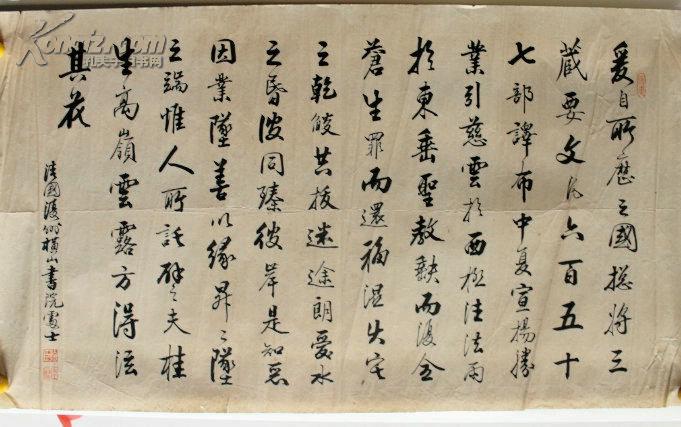 爰自所歷之國揔將三
藏要文凡六百五十
七部譯布中夏宣揚勝
業引慈雲於西極注法雨
於東垂聖教缺而復全
蒼生罪而還福濕火宅
之乾燄共拔迷途朗愛水
之昏波同臻彼岸是知惡
因業墜善以緣昇〻墜
之端惟人所託譬夫桂
生高嶺雲露方得泫
其花
横山書院處士
Kongfz.com
孔夫子旧书网